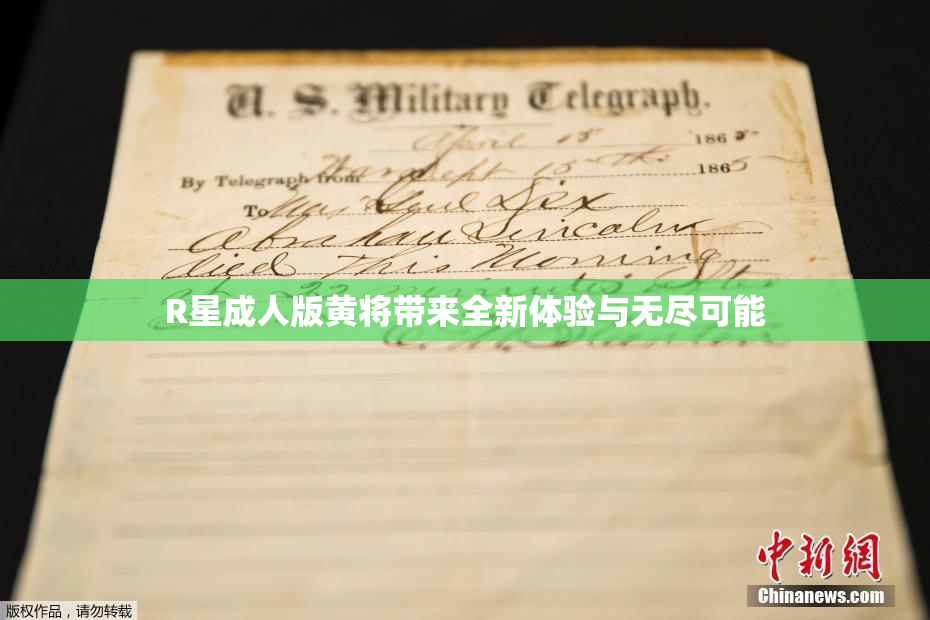 U. S. Military Telegraph.
April 15 1865
By Telegraph from War Dept 15th 1865
To Maj Genl Dix
Abraham Lincoln
died This Morning
at 22 minutes after
R星成人版黄将带来全新体验与无尽可能
中新网
Chinanews.com
版权作品，请勿转载